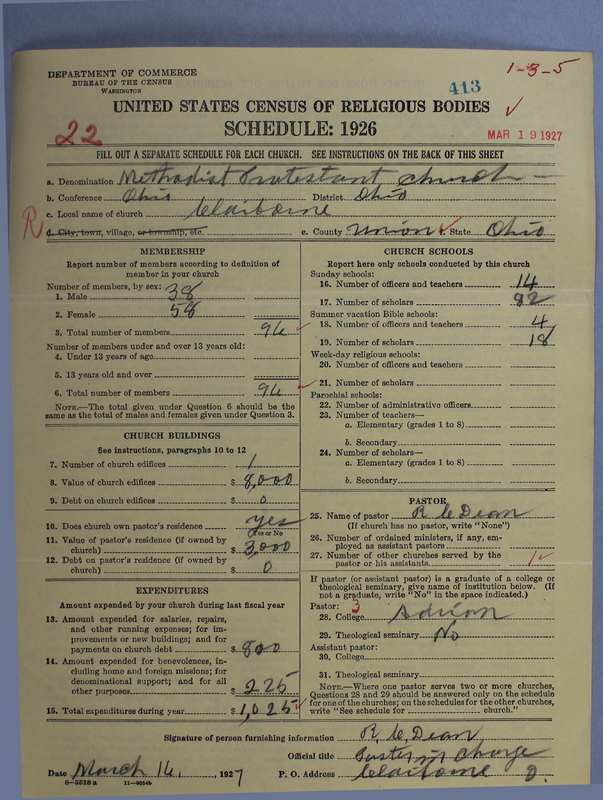 DEPARTMENT OF COMMERCE
BUREAU OF THE CENSUS
WASHINGTON
413
1-3-5
UNITED STATES CENSUS OF RELIGIOUS BODIES
SCHEDULE: 1926
22
MAR 19 1927
FILL OUT A SEPARATE SCHEDULE FOR EACH CHURCH. SEE INSTRUCTIONS ON THE BACK OF THIS SHEET
a. Denomination Methodist Protestant Church
b. Conference Ohio District Ohio
c. Local name of church Claiborne
R
d. City, town, village, or township, etc. e. County Union f. State Ohio
MEMBERSHIP
Report number of members according to definition of
member in your church
Number of members, by sex:
1. Male 38
2. Female 58
3. Total number of members 96
Number of members under and over 13 years old:
4. Under 13 years of age
5. 13 years old and over
6. Total number of members 96
NOTE.—The total given under Question 6 should be the
same as the total of males and females given under Question 3.
CHURCH BUILDINGS
See instructions, paragraphs 10 to 12
7. Number of church edifices 1
8. Value of church edifices $ 8,000
9. Debt on church edifices $ 0
10. Does church own pastor's residence yes
Yes or No
11. Value of pastor's residence (if owned by
church) $ 3,000
12. Debt on pastor's residence (if owned by
church) $ 0
EXPENDITURES
Amount expended by your church during last fiscal year
13. Amount expended for salaries, repairs,
and other running expenses; for im-
provements or new buildings; and for
payments on church debt $ 800
14. Amount expended for benevolences, in-
cluding home and foreign missions; for
denominational support; and for all
other purposes $ 225
15. Total expenditures during year $ 1,025
CHURCH SCHOOLS
Report here only schools conducted by this church
Sunday schools:
16. Number of officers and teachers 14
17. Number of scholars 82
Summer vacation Bible schools:
18. Number of officers and teachers 4
19. Number of scholars 18
Week-day religious schools:
20. Number of officers and teachers
21. Number of scholars
Parochial schools:
22. Number of administrative officers
23. Number of teachers—
a. Elementary (grades 1 to 8)
b. Secondary
24. Number of scholars—
a. Elementary (grades 1 to 8)
b. Secondary
PASTOR
25. Name of pastor R C Dean
(If church has no pastor, write "None")
26. Number of ordained ministers, if any, em-
ployed as assistant pastors
27. Number of other churches served by the
pastor or his assistants 1
If pastor (or assistant pastor) is a graduate of a college or
theological seminary, give name of institution below. (If
not a graduate, write "No" in the space indicated.)
Pastor: 3
28. College Adrian
29. Theological seminary No
Assistant pastor:
30. College
31. Theological seminary
NOTE.—Where one pastor serves two or more churches,
Questions 28 and 29 should be answered only on the schedule
for one of the churches; on the schedules for the other churches,
write "See schedule for church."
Signature of person furnishing information R. C. Dean
Official title Paster in Charge
Date March 16, 1927 P. O. Address Claiborne O.
8-5518 a 11-9054b